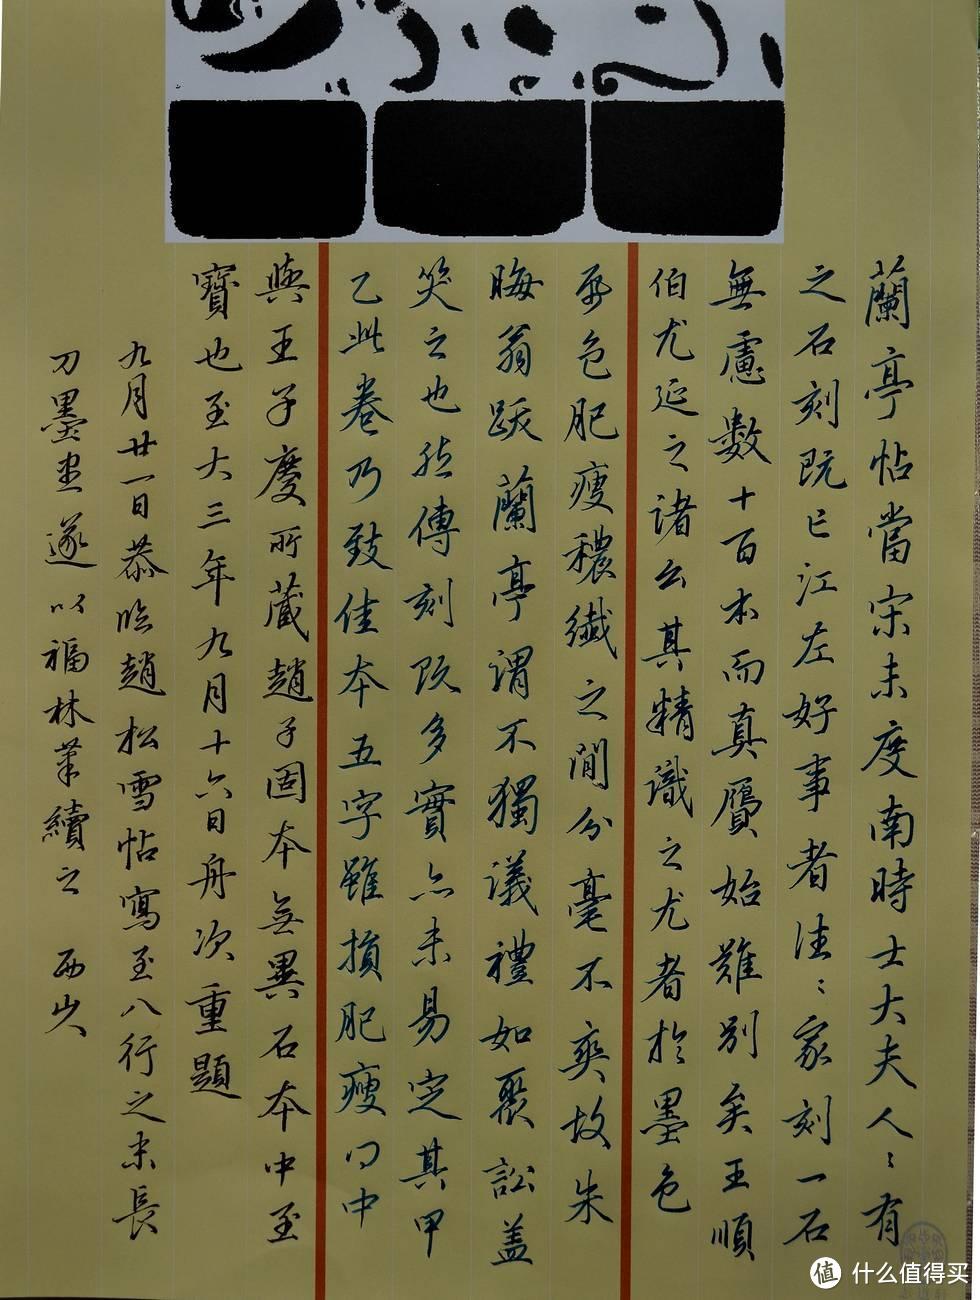 蘭亭帖當宋未度南時士大夫人〻有
之石刻既亡江左好事者往〻家刻一石
無慮數十百本而真贋始難別矣王順
伯尤延之諸公其精識之尤者於墨色
帋色肥瘦穠纖之間分毫不爽故朱
晦翁跋蘭亭謂不獨議禮如聚訟蓋
笑之也然傳刻既多實亦未易定其甲
乙此卷乃致佳本五字雖損肥瘦得中
與王子慶所藏趙子固本無異石本中至
寶也至大三年九月十六日舟次重題
九月廿一日恭臨趙松雪帖寫至八行之末長
刀墨盡遂以福林筆續之 西
值 什么值得买